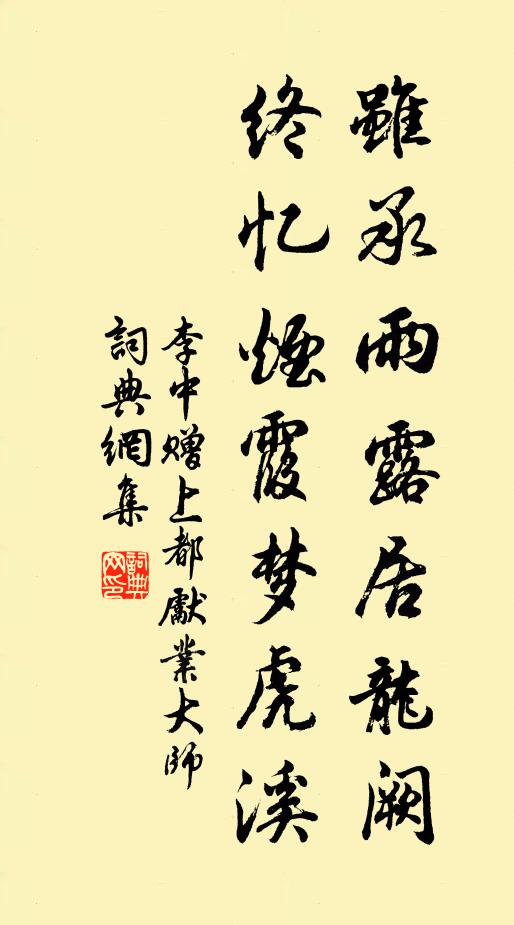 雖承雨露居龍阙
终忆煙霞梦虎溪
李中赠上都獻業大師
詞典網集
詞典网印